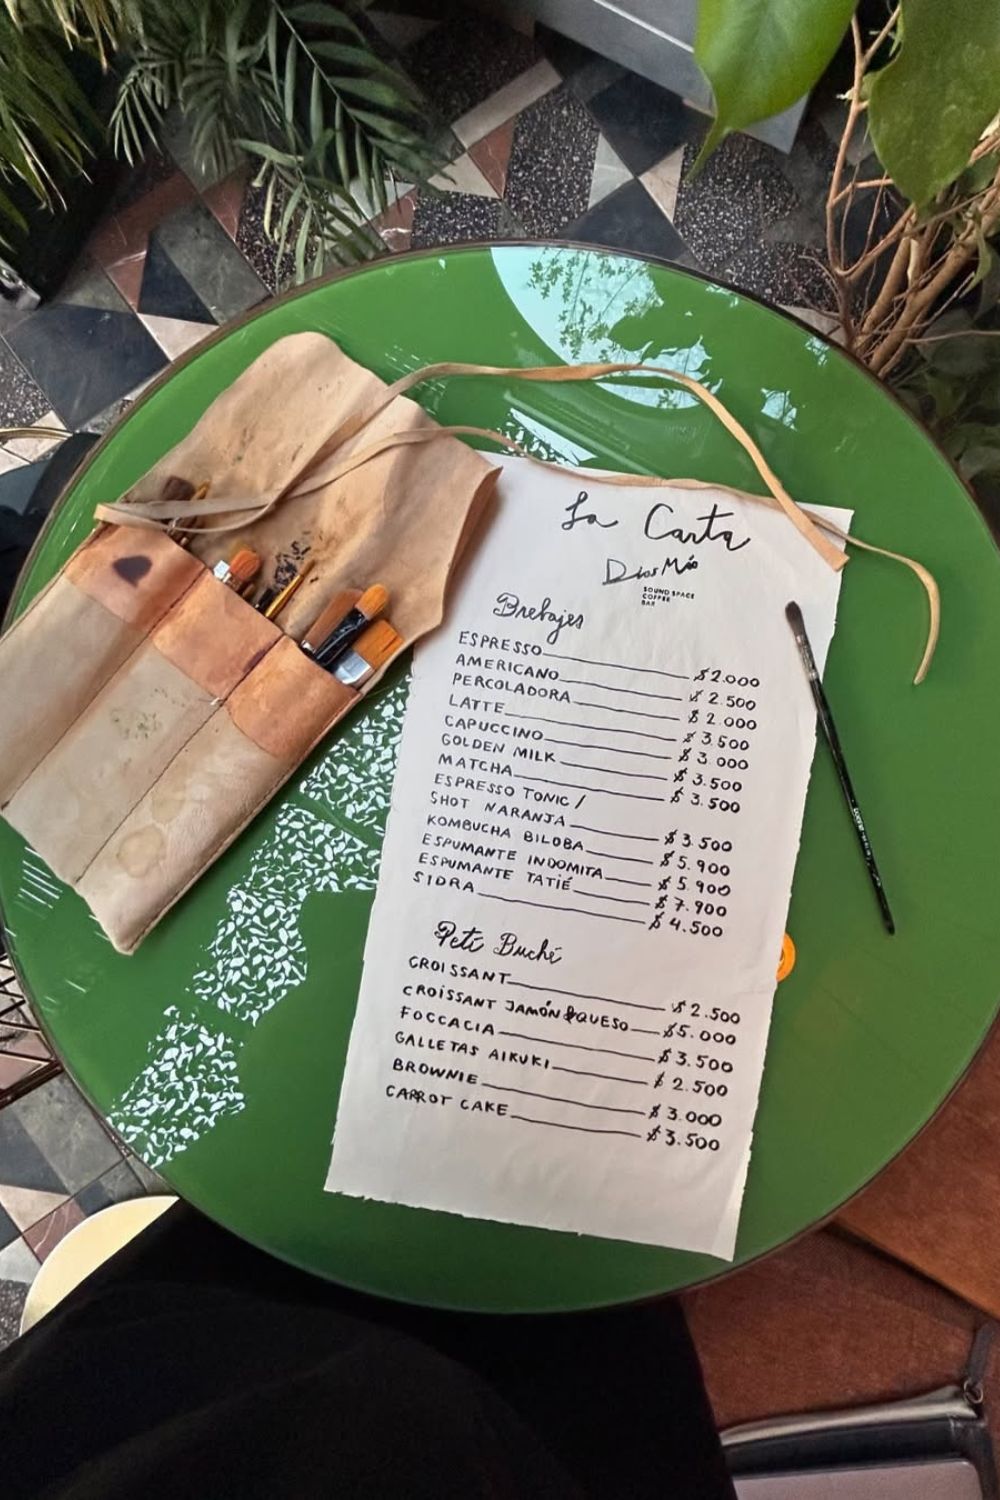 La Carta
Dios Mío
SOUND SPACE
COFFEE
BAR
Brebajes
ESPRESSO $2.000
AMERICANO $2.500
PERCOLADORA $2.000
LATTE $3.500
CAPUCCINO $3.000
GOLDEN MILK $3.500
MATCHA $3.500
ESPRESSO TONIC /
SHOT NARANJA $3.500
KOMBUCHA BILOBA $5.900
ESPUMANTE INDOMITA $5.900
ESPUMANTE TATIÉ $7.900
SIDRA $4.500
Peti Buché
CROISSANT $2.500
CROISSANT JAMÓN & QUESO $5.000
FOCCACIA $3.500
GALLETAS AIKUKI $2.500
BROWNIE $3.000
CARROT CAKE $3.500